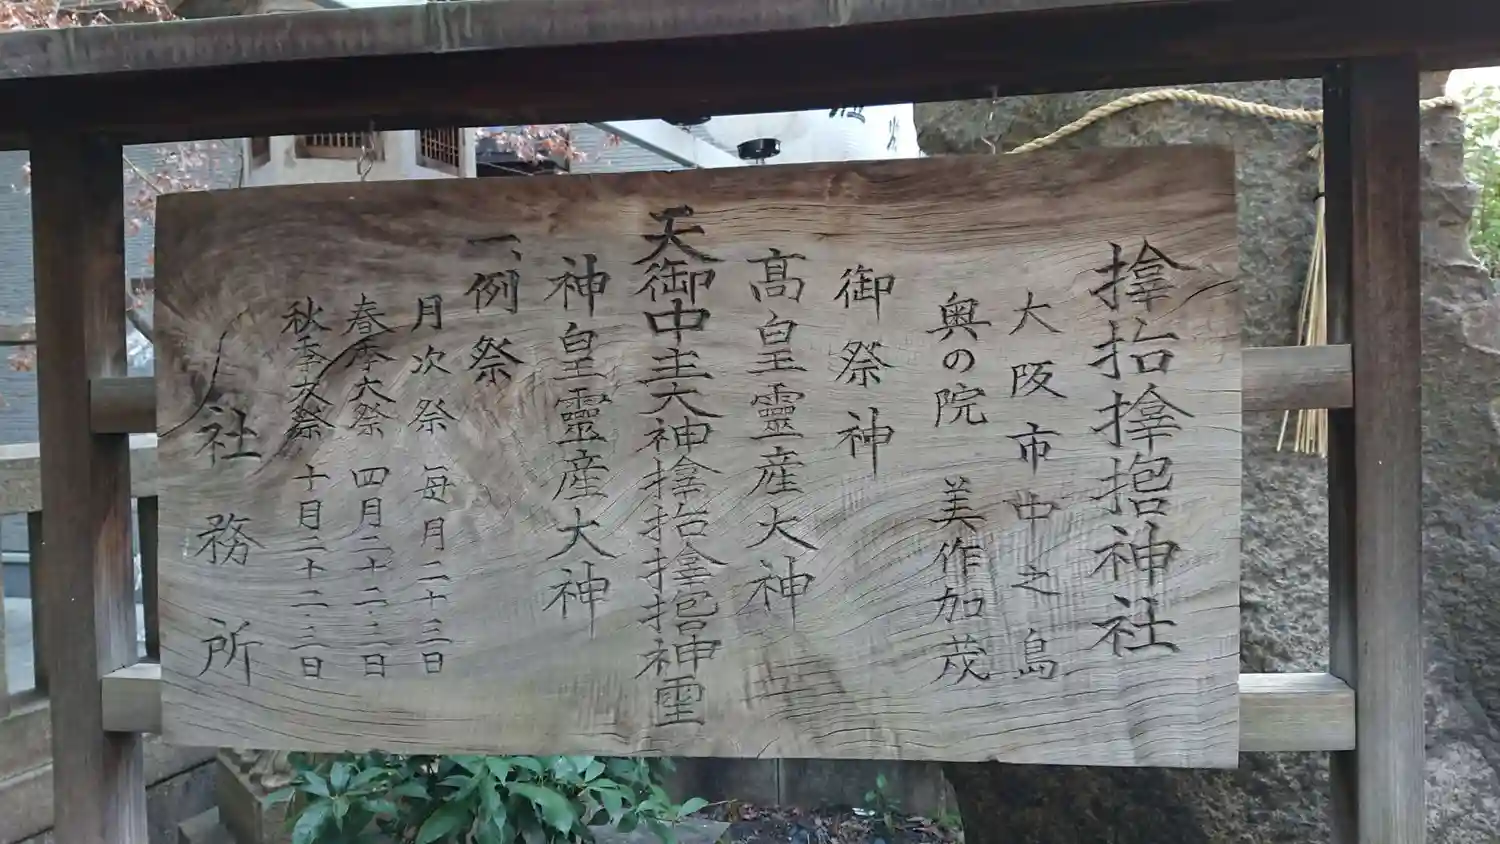 𪮷抬𪮷𪮇神社
大阪市中之島
奥の院 美作加茂
御祭神
高皇靈産大神
天御中主大神𪮷抬𪮷𪮇神霊
神皇靈産大神
一、例祭
月次祭 毎月二十三日
春季大祭 四月二十二・三日
秋季大祭 十月二十二・三日
社務所